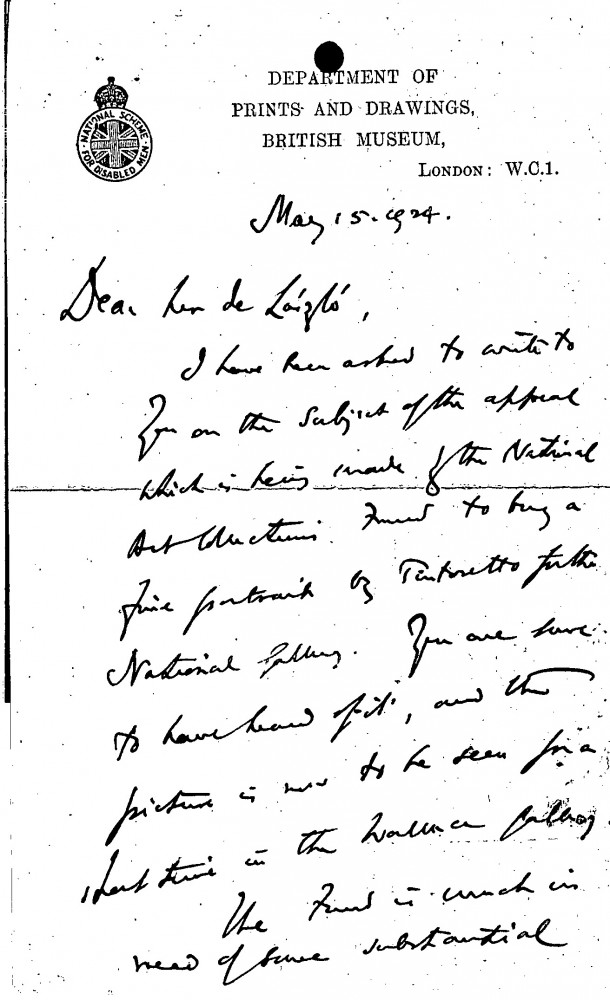 DEPARTMENT OF
PRINTS AND DRAWINGS,
BRITISH MUSEUM,
LONDON: W.C.1.
NATIONAL SCHEME
FOR DISABLED MEN
May 15. 1924.
Dear de László,
I have been asked to write to
you on the subject of the appeal
which is being made by the National
Art Collections Fund to buy a
fine portrait by Tintoretto for the
National Gallery. You are sure
to have heard of it, and the
picture is now to be seen for a
short time in the Wallace Gallery
The Fund is much in
need of some substantial